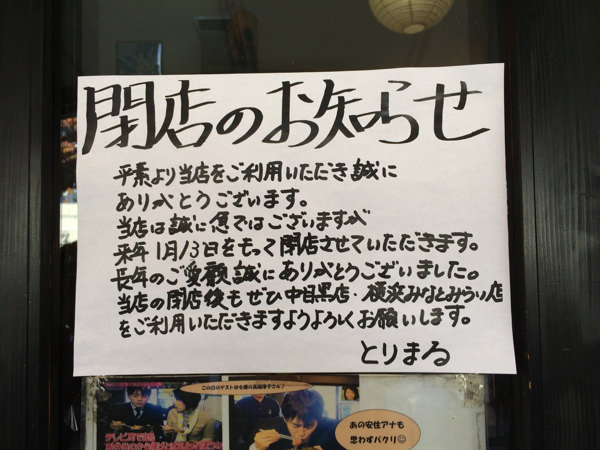 閉店のお知らせ
平素より当店をご利用いただき誠に
ありがとうございます。
当店は誠に急ではございますが
来年1月13日をもって閉店させていただきます。
長年のご愛顧誠にありがとうございました。
当店の閉店後もぜひ中目黒店・横浜みなとみらい店
をご利用いただきますようよろしくお願いします。
とりまる
この日のゲストは女優の高畑淳子さん♪
あの安住アナも
思わずパクリ☺